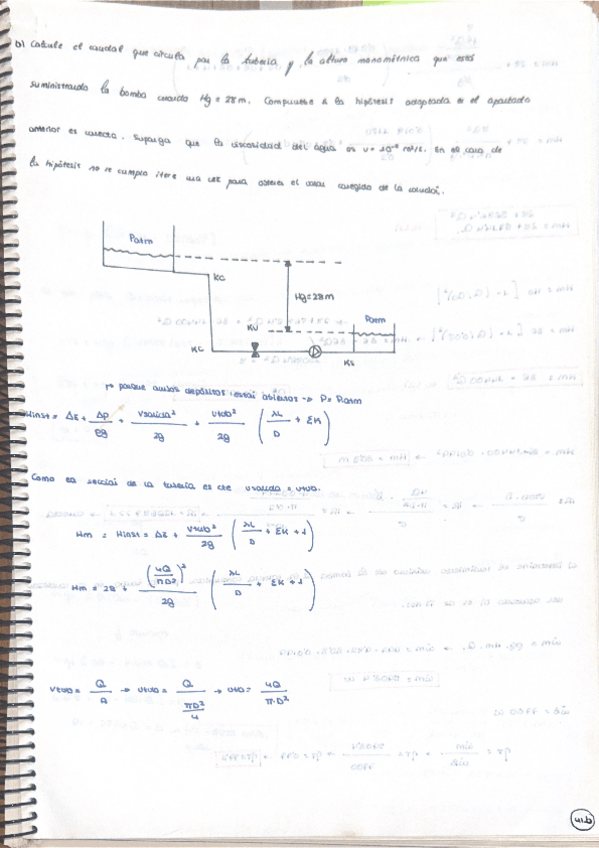 b) Calcule el caudal que circula por la tubería y la altura manométrica que está
suministrando la bomba cuando Hg = 28m. Compruebe si la hipótesis adoptada en el apartado
anterior es correcta. Suponga que la viscosidad del agua es υ = 10⁻⁶ m²/s. En el caso de
la hipótesis no se cumpla itere una vez para obtener el valor corregido de la solución.
Patm
KC
Hg = 28m
Patm
KV
KC
KE
→ porque ambos depósitos están abiertos → P = Patm
Hinst = Δz + Δp/ρg + Vsalida²/2g + Vtub²/2g (λL/D + ΣK)
Como la sección de la tubería es cte Vsalida = Vtub.
Hm = Hinst = Δz + Vtub²/2g (λL/D + ΣK + 1)
Hm = 28 + (4Q/πD²)²/2g (λL/D + ΣK + 1)
Vtub = Q/A → Vtub = Q/(πD²/4) → Vtub = 4Q/π·D²
41.b